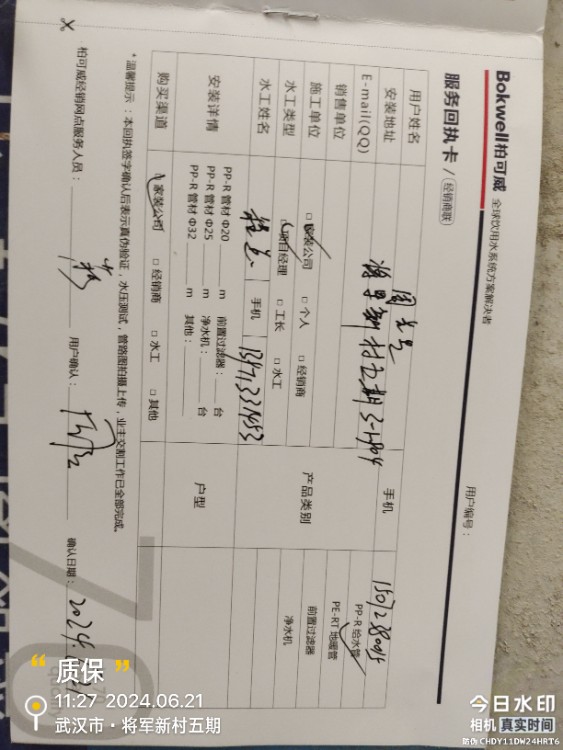 Bokwell柏可威 全球饮用水系统方案解决者
用户编号：
服务回执卡 / 经销商联
用户姓名
手机
安装地址 将军新村五期3-1-904
E-mail(QQ)
销售单位
产品类别
PP-R 给水管
PE-RT 地暖管
前置过滤器
净水机
施工单位 □家装公司 □个人 □经销商
水工类型 □项目经理 □工长 □水工
水工姓名 手机
安装详情
PP-R 管材 Φ20 m 前置过滤器： 台
PP-R 管材 Φ25 m 净水机： 台
PP-R 管材 Φ32 m 其他：
户型
购买渠道 家装公司 □经销商 □水工 □其他
*温馨提示：本回执签字确认后表示真伪验证，水压测试，管路图拍摄上传，业主交割工作已全部完成。
柏可威经销网点服务人员： 用户确认： 确认日期： 2024.
“质保”
11:27 2024.06.21
武汉市·将军新村五期
今日水印
相机 真实时间
防伪 CHDY11DW24HRT6